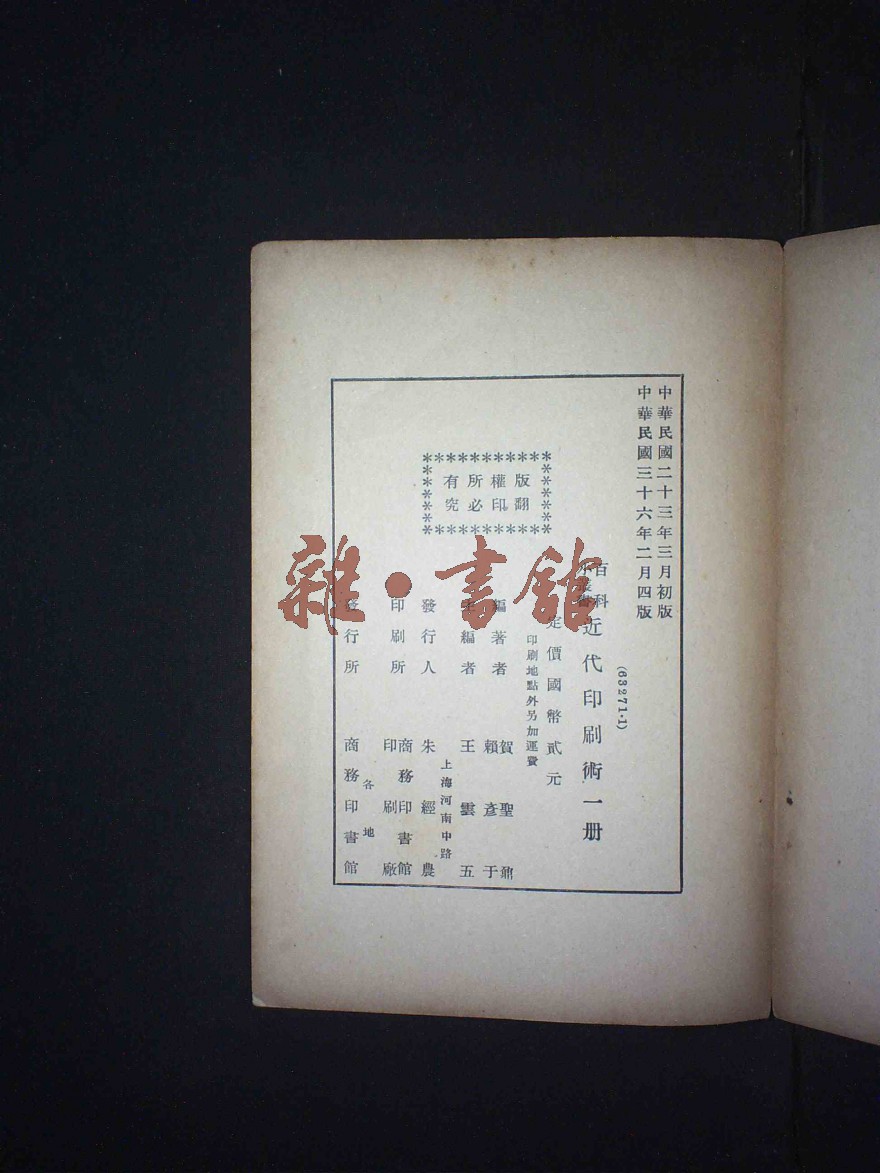 中華民國二十三年三月初版
中華民國三十六年二月四版
(63271·1)
百科
小叢書
近代印刷術一册
定價國幣貳元
印刷地點外另加運費
版權所有
翻印必究
編著者 賀聖鼐
賴彥于
主編者 王雲五
上海河南中路
發行人 朱經農
印刷所 商務印書館
印刷廠
各地
發行所 商務印書館
雜·書館